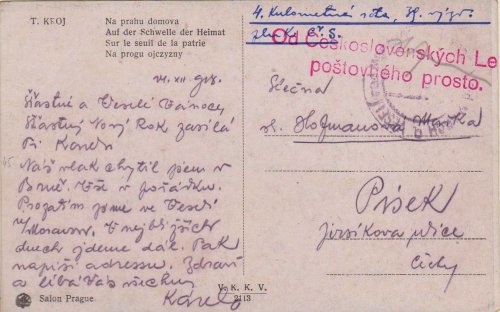 T. KROJ
Na prahu domova
Auf der Schwelle der Heimat
Sur le seuil de la patrie
Na progu ojczyzny
Šťastné a Veselé Vánoce,
Šťastný Nový Rok zasílá
Karel
Náš vlak chytil jsem v
Brně. Vše v pořádku.
Prozatím jsme ve Veselí
n/Moravou. V nejbližších
dnech jdeme dál. Pak
napíši adressu. Zdraví
a líbá Vás všechny
Karel
Salon Prague
V. K. K. V.
2113
4. Kulometná rota,
Od Československých Le
poštovního prosto.
Slečna
sl. Hofmanova
Písek
Jirsíkova ulice
Čechy